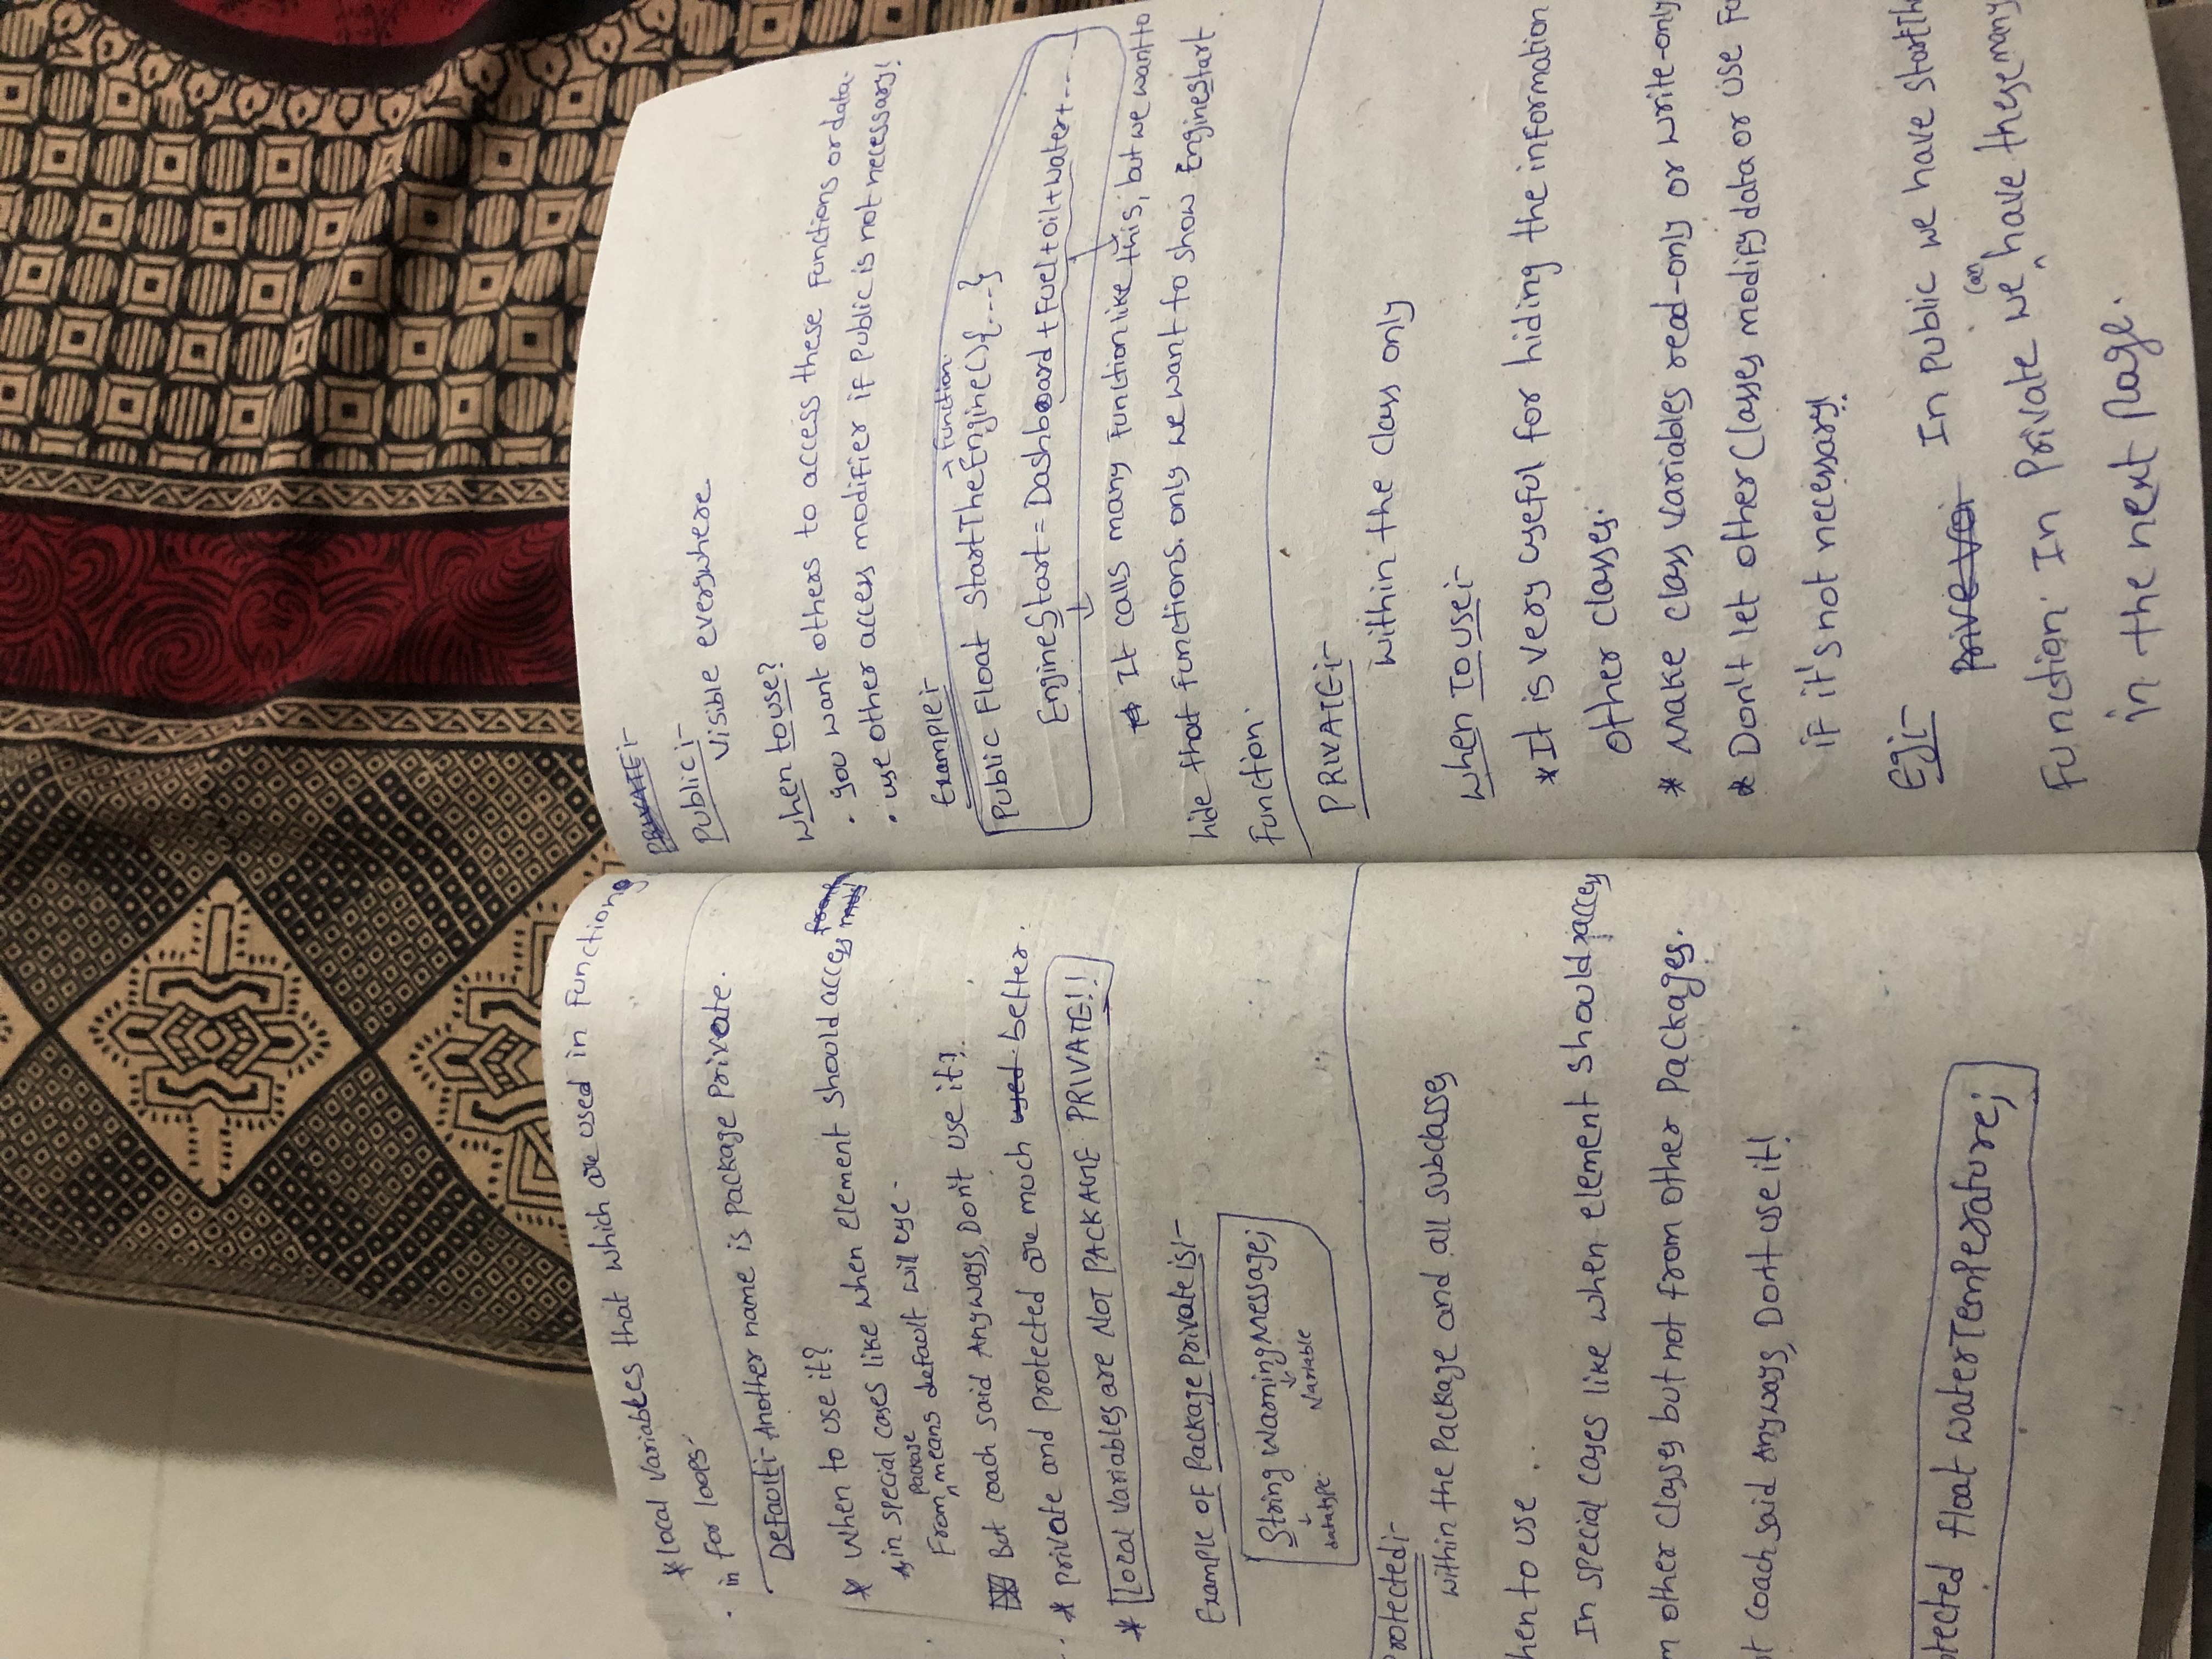 * Local variables that which are used in functions
in for loops.
Default:- Another name is package private.
* When to use it?
in special cases like when element should access
From package means default will use.
But coach said Anyways, Don't use it!.
* private and protected are much used better.
* Local variables are NOT PACKAGE PRIVATE!!
Example of package private is:-
String warningMessage;
datatype. Variable
Protected:-
within the package and all subclasses
hen to use ..
In special cases like when element should access
m other classes but not from other packages.
t coach said Anyways, Don't use it!
otected float waterTemperature;
PRIVATE:-
Public:-
Visible everywhere.
when to use?
. you want others to access these functions or data.
. use other access modifier if public is not necessary!
Example:-
→ function.
Public Float StartTheEngine(){...}
EngineStart = Dashboard + Fuel + oil + water + ....
It calls many function like this, but we want to
hide that functions. only we want to show Enginestart
Function.
PRIVATE:-
within the class only
when To use:-
* It is very useful for hiding the information
other classes.
* Make class variables read-only or write-only
* Don't let other classes modify data or use Fu
if it's not necessary!
Eg:-
Prive voi In public we have StartTh
Function. In Private we can have these many
in the next page.